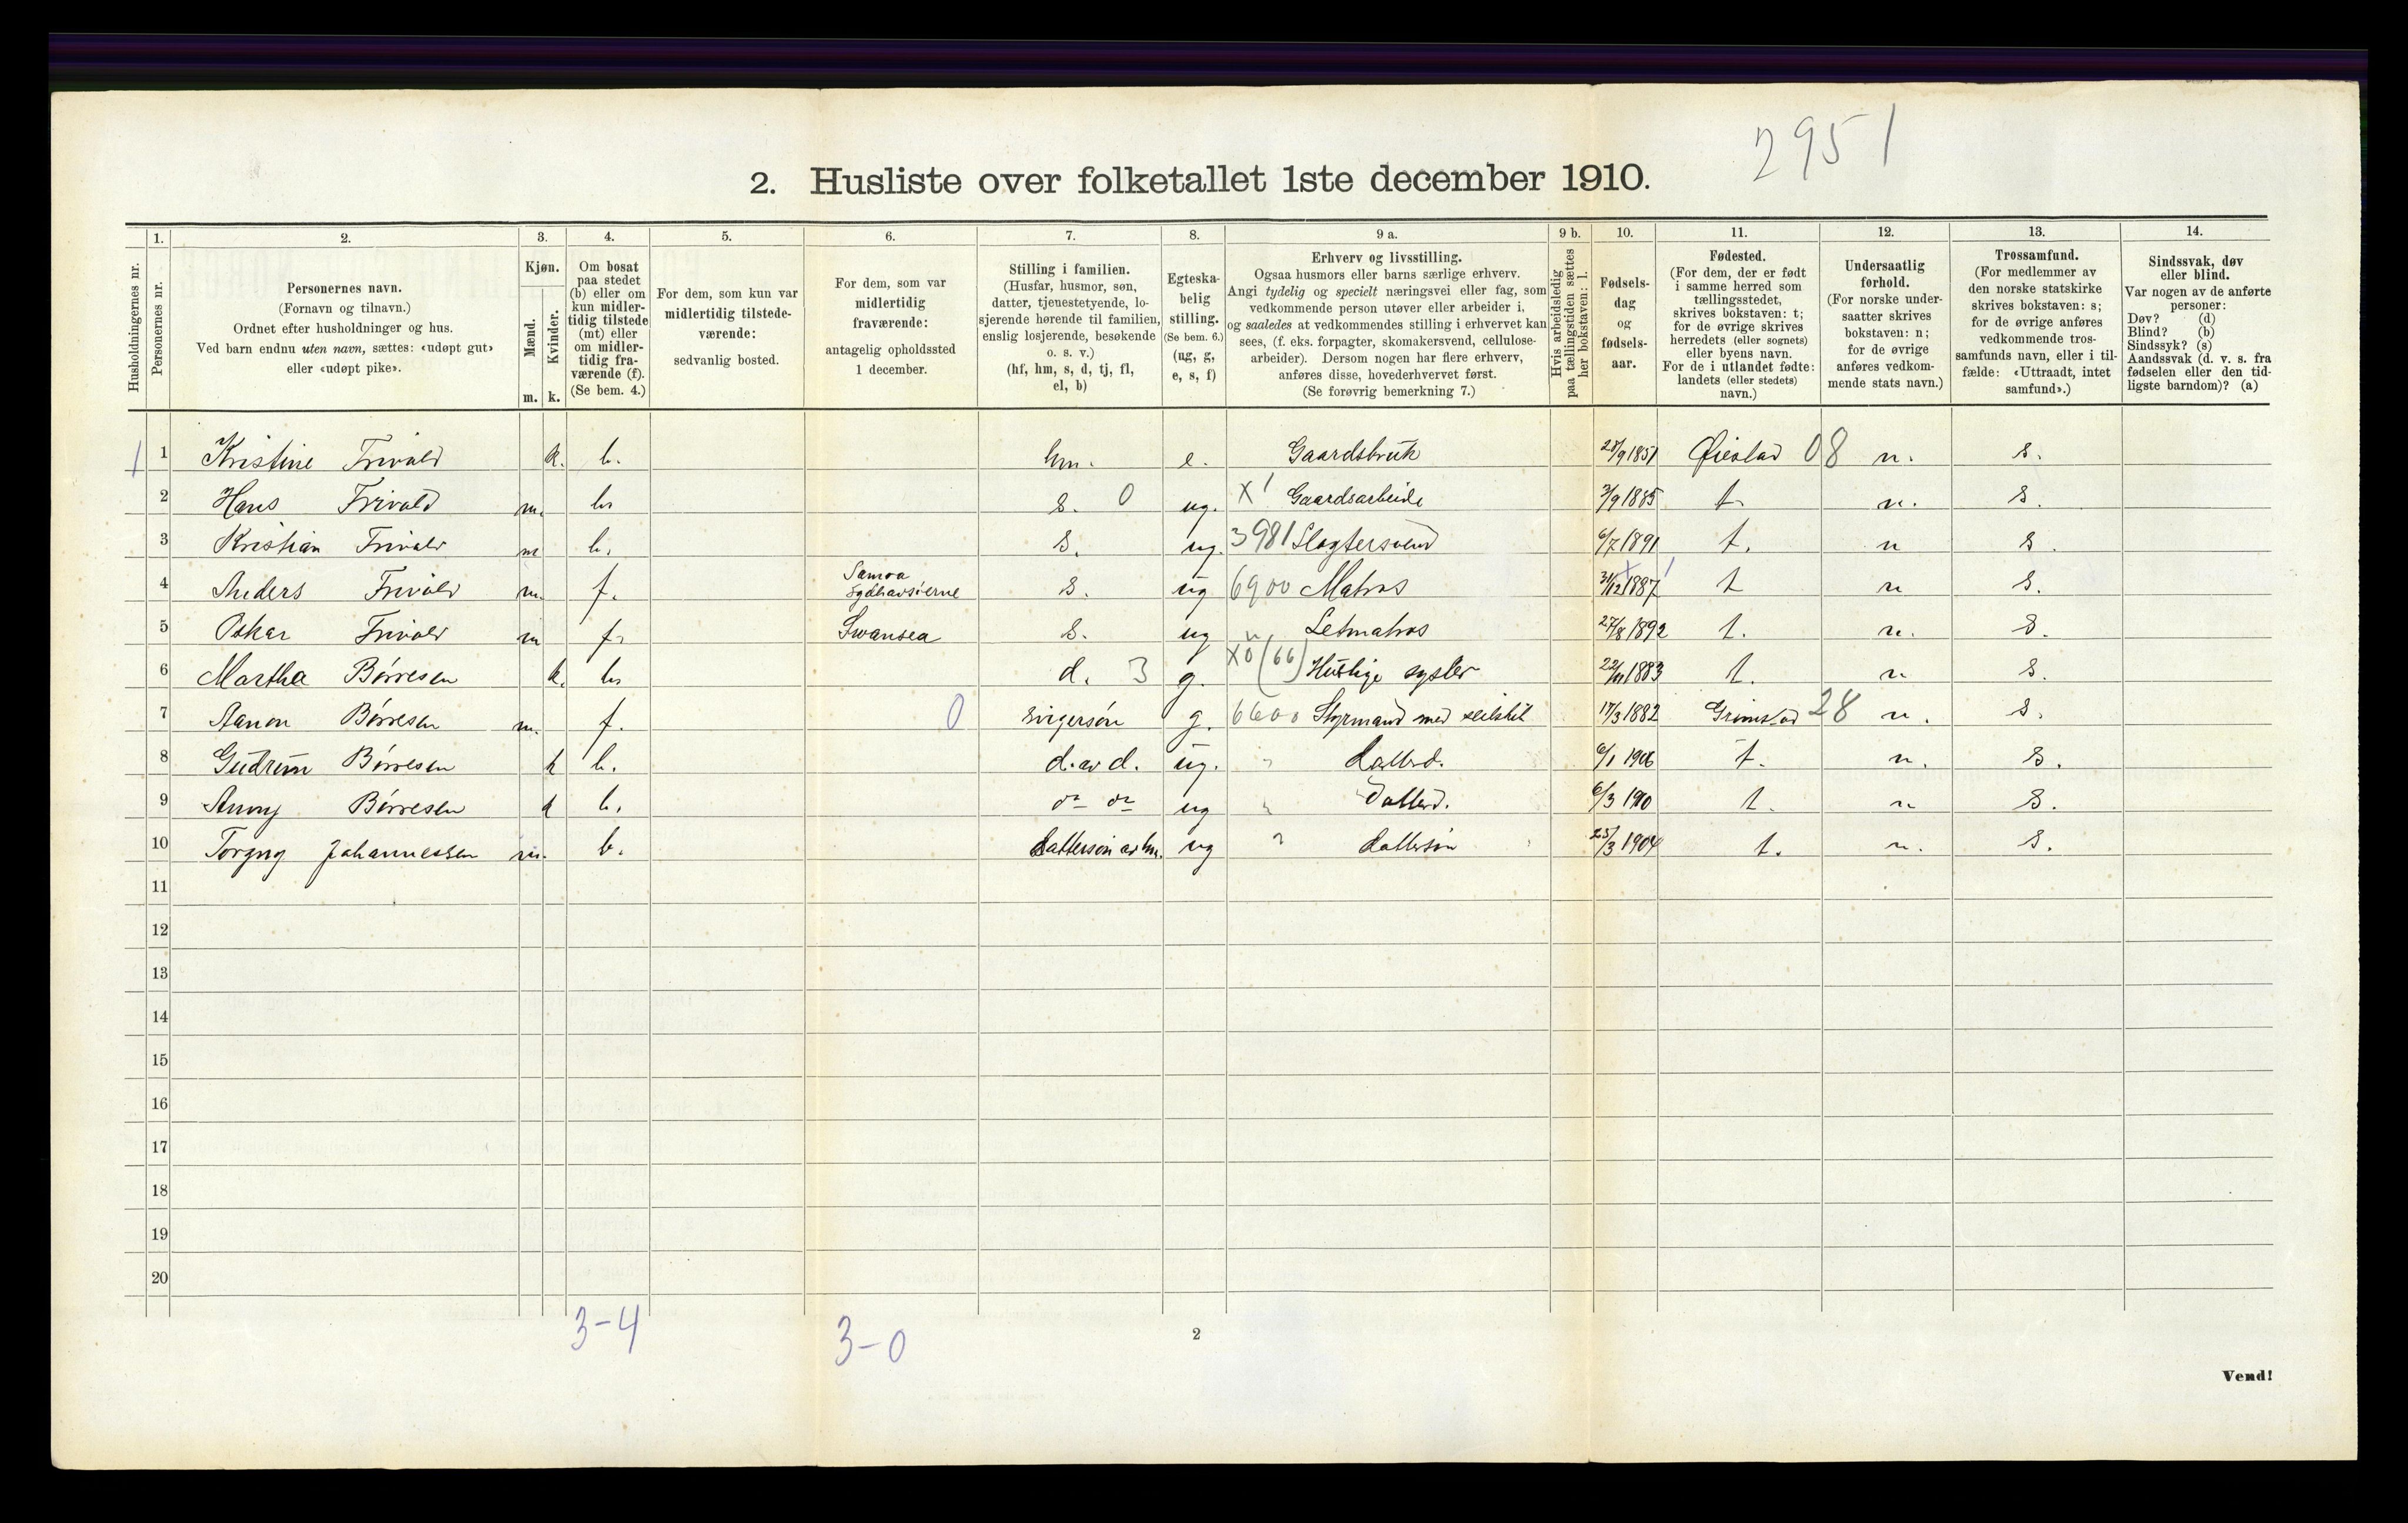 2951
2. Husliste over folketallet 1ste december 1910.
Husholdningernes nr.
1.
Personernes nr.
2.
Personernes navn.
(Fornavn og tilnavn.)
Ordnet efter husholdninger og hus.
Ved barn endnu uten navn, sættes: «udøpt gut»
eller «udøpt pike».
3.
Kjøn.
Mænd.
Kvinder.
m. k.
4.
Om bosat
paa stedet
(b) eller om
kun midler-
tidig tilstede
(mt) eller
om midler-
tidig fra-
værende (f).
(Se bem. 4.)
5.
For dem, som kun var
midlertidig tilstede-
værende:
sedvanlig bosted.
6.
For dem, som var
midlertidig
fraværende:
antagelig opholdssted
1 december.
7.
Stilling i familien.
(Husfar, husmor, søn,
datter, tjenestetyende, lo-
sjerende hørende til familien,
enslig losjerende, besøkende
o. s. v.)
(hf, hm, s, d, tj, fl,
el, b)
8.
Egteska-
belig
stilling.
(Se bem. 6.)
(ug, g,
e, s, f)
9 a.
Erhverv og livsstilling.
Ogsaa husmors eller barns særlige erhverv.
Angi tydelig og specielt næringsvei eller fag, som
vedkommende person utøver eller arbeider i,
og saaledes at vedkommendes stilling i erhvervet kan
sees, (f. eks. forpagter, skomakersvend, cellulose-
arbeider). Dersom nogen har flere erhverv,
anføres disse, hovederhvervet først.
(Se forøvrig bemerkning 7.)
9 b.
Hvis arbeidsledig
paa tællingstiden sættes
her bokstaven: l.
10.
Fødsels-
dag
og
fødsels-
aar.
11.
Fødested.
(For dem, der er født
i samme herred som
tællingsstedet,
skrives bokstaven: t;
for de øvrige skrives
herredets (eller sognets)
eller byens navn.
For de i utlandet fødte:
landets (eller stedets)
navn.)
12.
Undersaatlig
forhold.
(For norske under-
saatter skrives
bokstaven: n;
for de øvrige
anføres vedkom-
mende stats navn.)
13.
Trossamfund.
(For medlemmer av
den norske statskirke
skrives bokstaven: s;
for de øvrige anføres
vedkommende tros-
samfunds navn, eller i til-
fælde: «Uttraadt, intet
samfund».)
14.
Sindssvak, døv
eller blind.
Var nogen av de anførte
personer:
Døv? (d)
Blind? (b)
Sindssyk? (s)
Aandssvak (d. v. s. fra
fødselen eller den tid-
ligste barndom)? (a)
1 1 Kristine Trivold k. b. hm. e. Gaardsbruk 28/9 1851 Øiestad 08 n. s.
2 Hans Trivold m. b. s. 0 ug. X 1 Gaardsarbeide 3/9 1885 t. n. s.
3 Kristian Trivold m b. s. ug. 3981 Slagtersvend 6/7 1891 t. n s.
4 Anders Trivold m. f. Samoa Sydhavsøerne s. ug 6900 Matros 31/12 1887 t n s.
5 Oskar Trivold m f. Swansea s. ug " Letmatros 27/8 1892 t. n. s.
6 Martha Børresen k. b. d. 3 g. X0 (66) Huslige sysler 22/11 1883 t. n s.
7 Aanon Børresen m. f. 0 svigersøn g. 6600 Styrmand med seilskib 17/3 1882 Grimstad 28 n. s.
8 Gudrun Børresen k b. d. av d. ug. " datterd. 6/1 1906 t. n. s.
9 Anny Børresen k b. do do ug " datterd. 6/3 1910 t. n s.
10 Torgny Johannessen m. b. dattersøn av hm. ug " dattersøn 25/3 1904 t. n. s.
11
12
13
14
15
16
17
18
19
20
3-4
3-0
2
Vend!